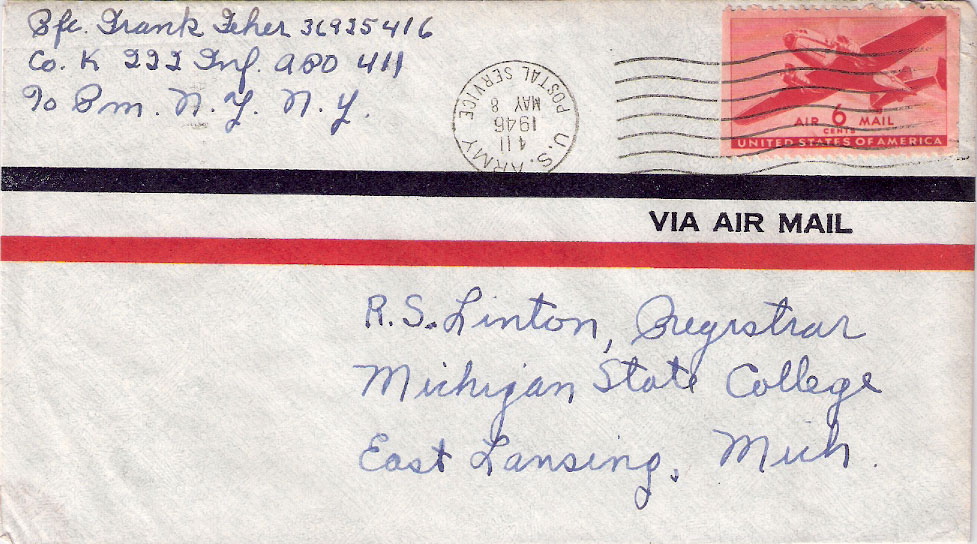 Pfc. Frank Feher 36925416
Co. K 222 Inf. APO 411
℅ Pm. N.Y. N.Y.
U.S. ARMY
POSTAL SERVICE
4 11
1946
MAY 8
AIR 6 MAIL
CENTS
UNITED STATES OF AMERICA
VIA AIR MAIL
R.S. Linton, Registrar
Michigan State College
East Lansing, Mich.